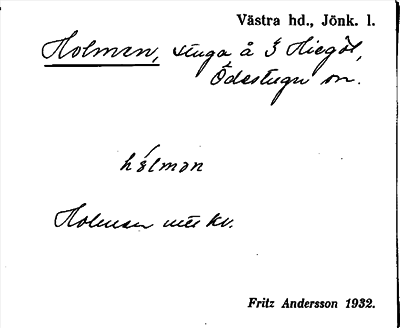 Västra hd., Jönk. l.
Holmen, stuga å S Hiegöl,
Ödestugu sn.
hólmən
Holmen utt kv.
Fritz Andersson 1932.